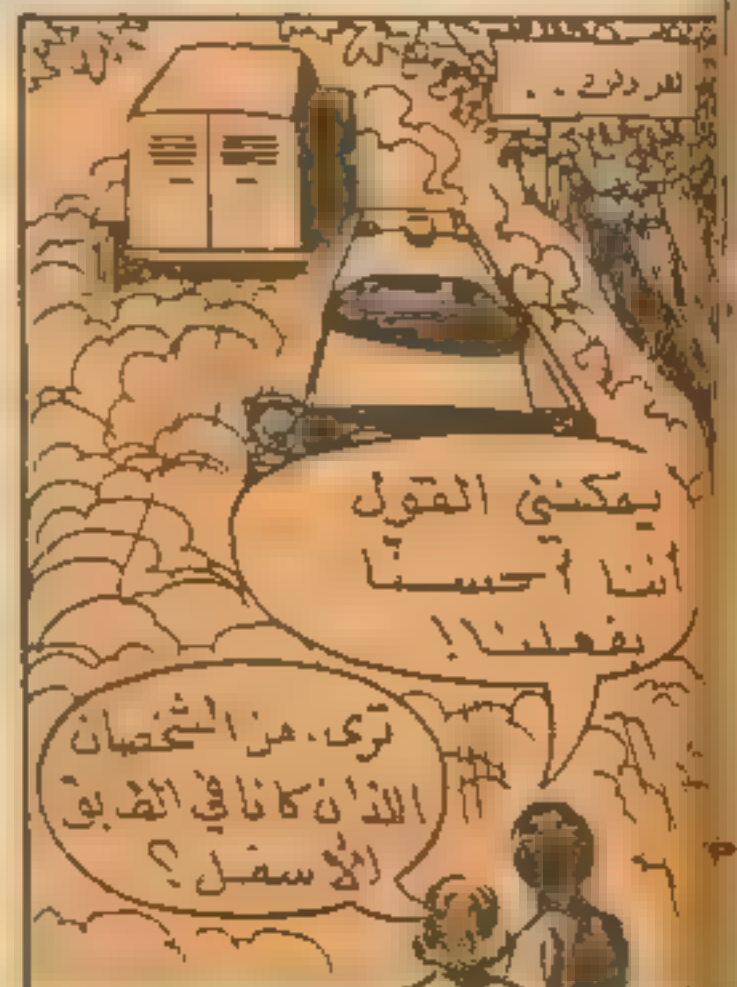 يمكنني القول
أننا أحسنا
بفعلنا!
ترى، من الشخصان
اللذان كانا في الطابق
الأسفل؟